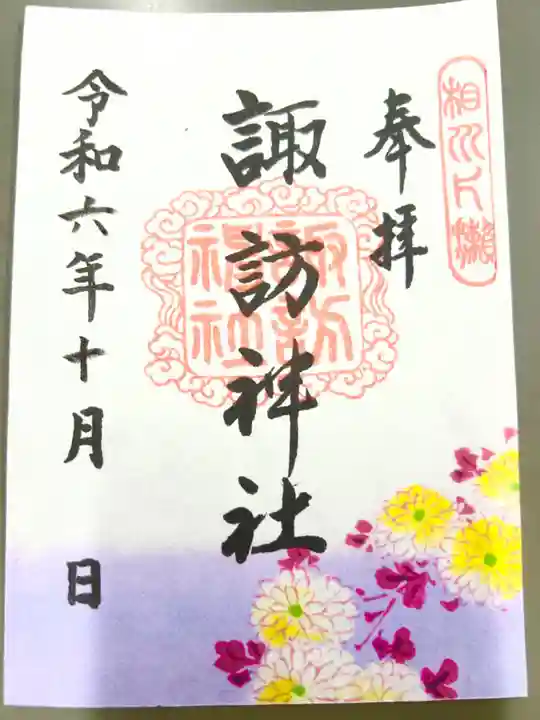 相州片瀬
奉拝
諏訪神社
諏訪
神社
令和六年十月 日